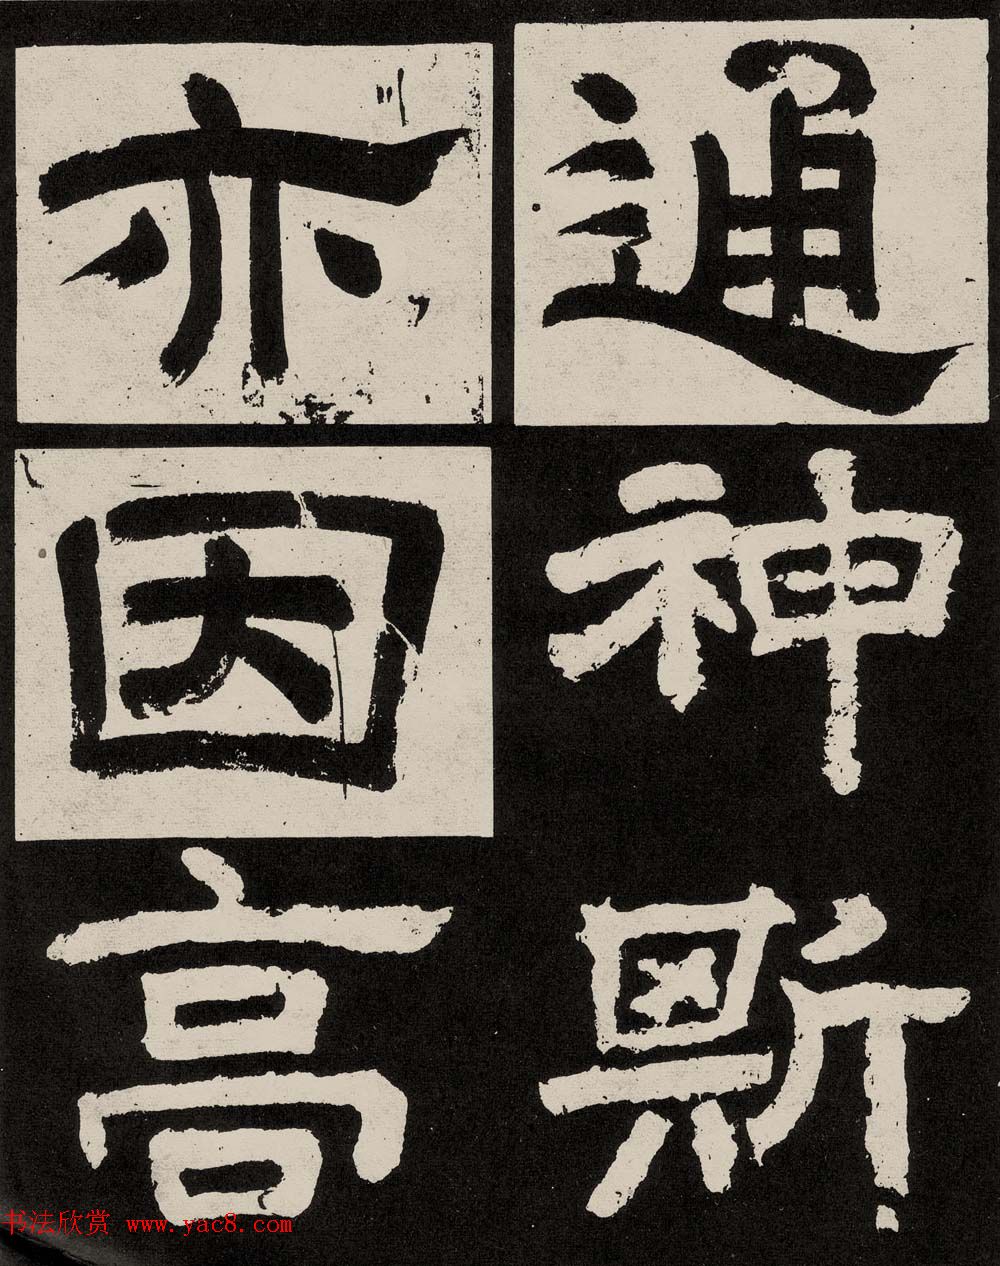 通神斯
亦因高
书法欣赏 www.yac8.com